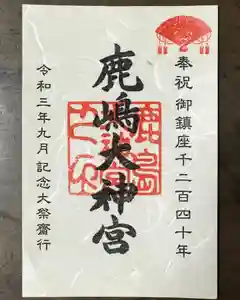 奉祝 御鎮座千二百四十年
鹿嶋大神宮
令和三年九月 記念大祭齋行